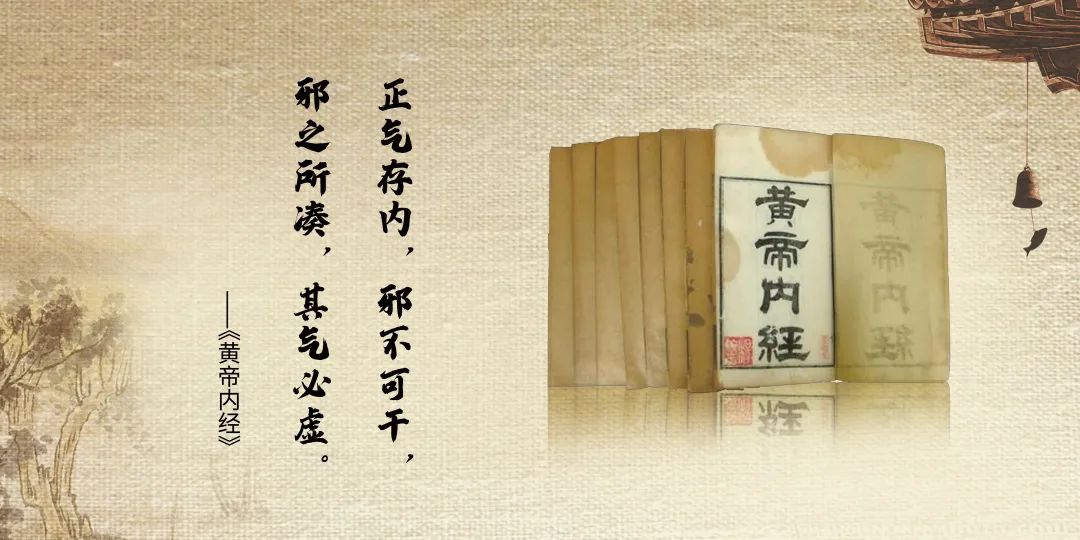 正气存内，邪不可干，
邪之所凑，其气必虚。
——《黄帝内经》
黄帝内經